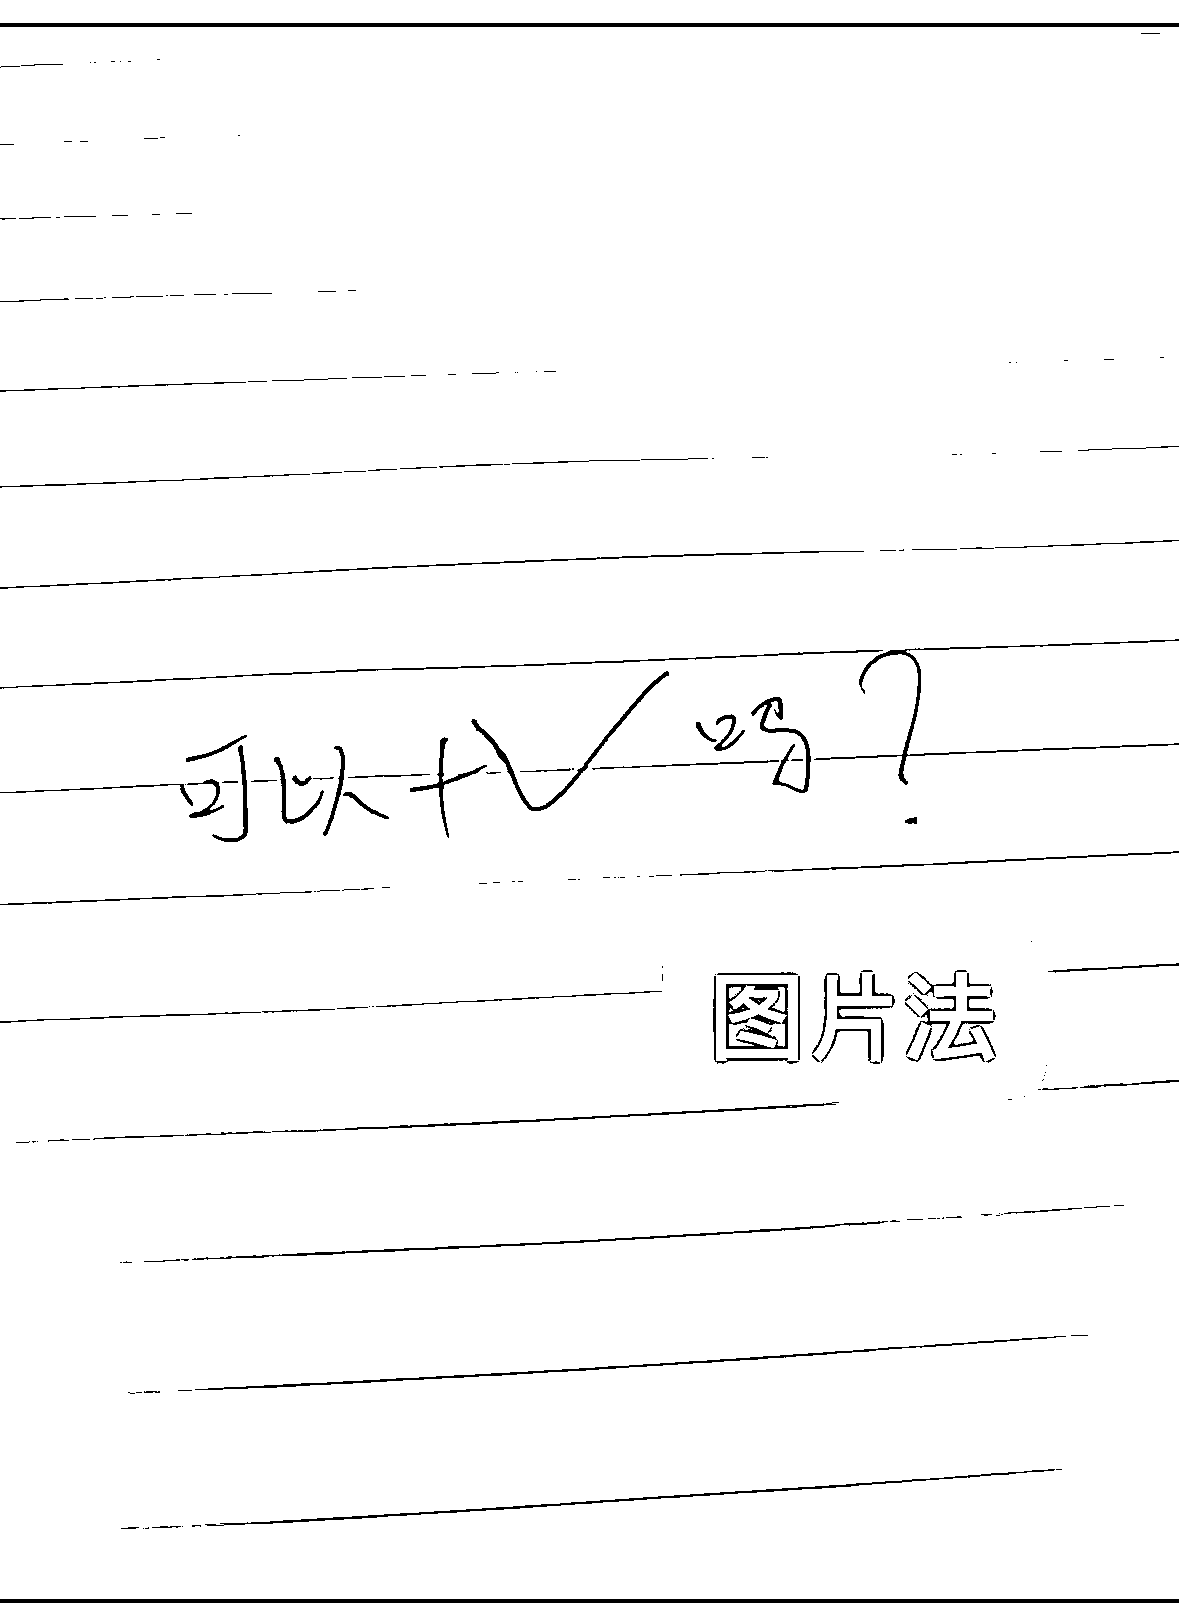 可以+V吗?
图片法